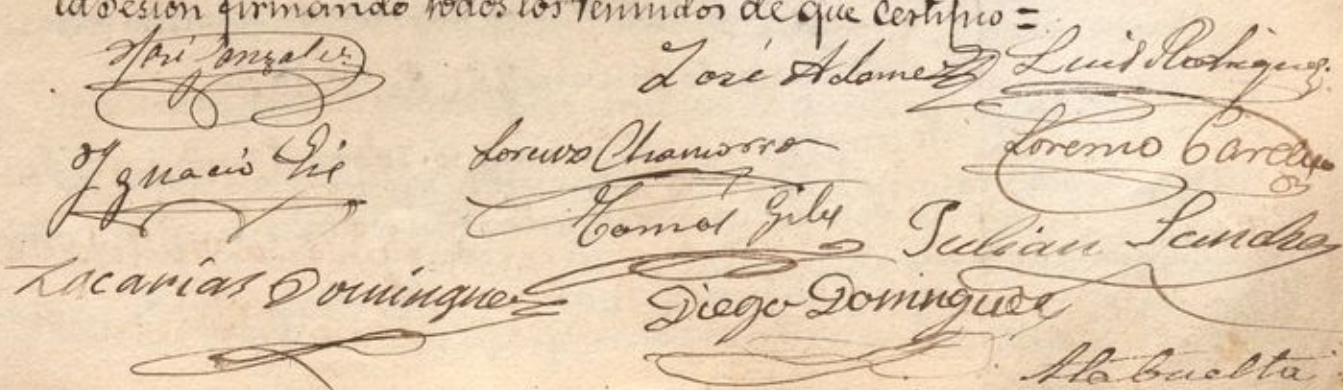 la Sesión firmando todos los reunidos de que certifico =
José Gonzalez José Adamez Luis Rodriguez
Ignacio Gil Lorenzo Chamorro Lorenzo
Tomás Julian
Zacarias Dominguez Diego Dominguez
A la buelta